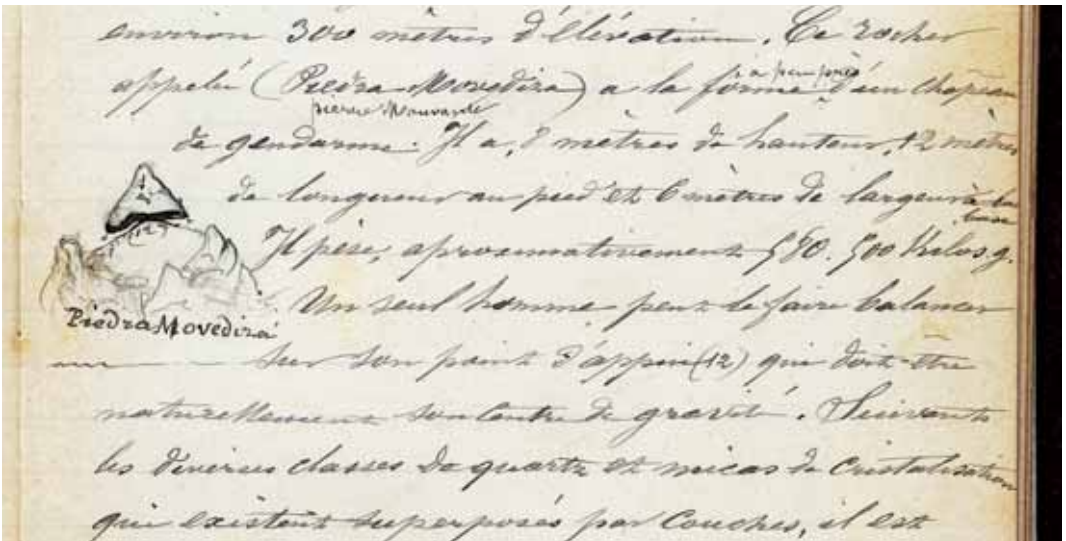 environ 300 mètres d'élévation. Ce rocher
appelé (Piedra Movediza) a la forme, à peu près, d'un chapeau
pierre Mouvante
de gendarme. Il a, 8 mètres de hauteur, 12 mètres
de longueur au pied et 6 mètres de largeur à la base
Il pèse, aproximativement 580.500 Kilos g.
Un seul homme peut le faire balancer
Piedra Movediza
sur son point d'appui (12) qui doit être
naturellement son Centre de gravité. Suivant
les diverses classes de quartz et micas de Cristalisation
qui existent superposés par Couches, il est